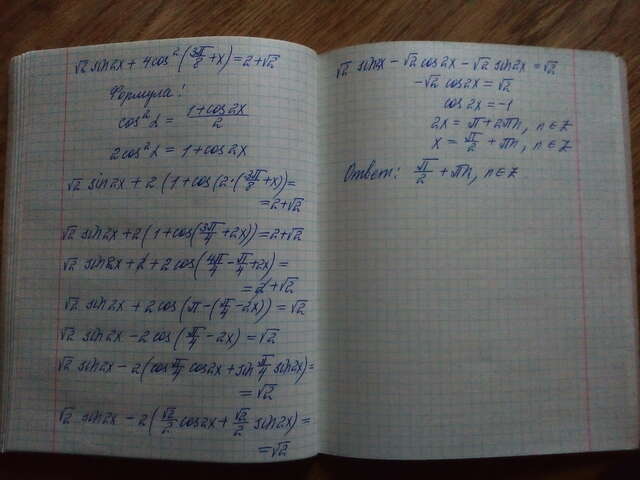 √2 sin2x + 4cos²(3π/8 + x) = 2+√2
Формула:
cos²α = (1+cos2α)/2
2cos²α = 1+cos2α
√2 sin2x + 2(1+cos(2·(3π/8+x)) =
= 2+√2
√2 sin2x + 2(1+cos(3π/4+2x)) = 2+√2
√2 sin2x + 2 + 2cos(4π/4 - π/4 + 2x) =
= 2+√2
√2 sin2x + 2cos(π-(π/4-2x)) = √2
√2 sin2x - 2cos(π/4-2x) = √2
√2 sin2x - 2(cos π/4 cos2x + sin π/4 sin2x) =
= √2
√2 sin2x - 2(√2/2 cos2x + √2/2 sin2x) =
= √2
√2 sin2x - √2 cos2x - √2 sin2x = √2
-√2 cos2x = √2
cos2x = -1
2x = π+2πn, n∈Z
x = π/2 + πn, n∈Z
Ответ: π/2 + πn, n∈Z